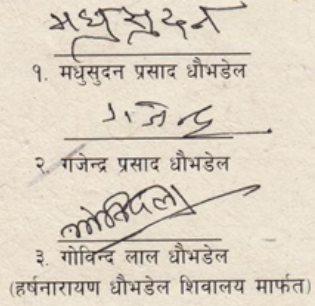 मधुसुदन
१. मधुसुदन प्रसाद धौभडेल
गजेन्द्र
२. गजेन्द्र प्रसाद धौभडेल
३. गोविन्द लाल धौभडेल
(हर्षनारायण धौभडेल शिवालय मार्फत)